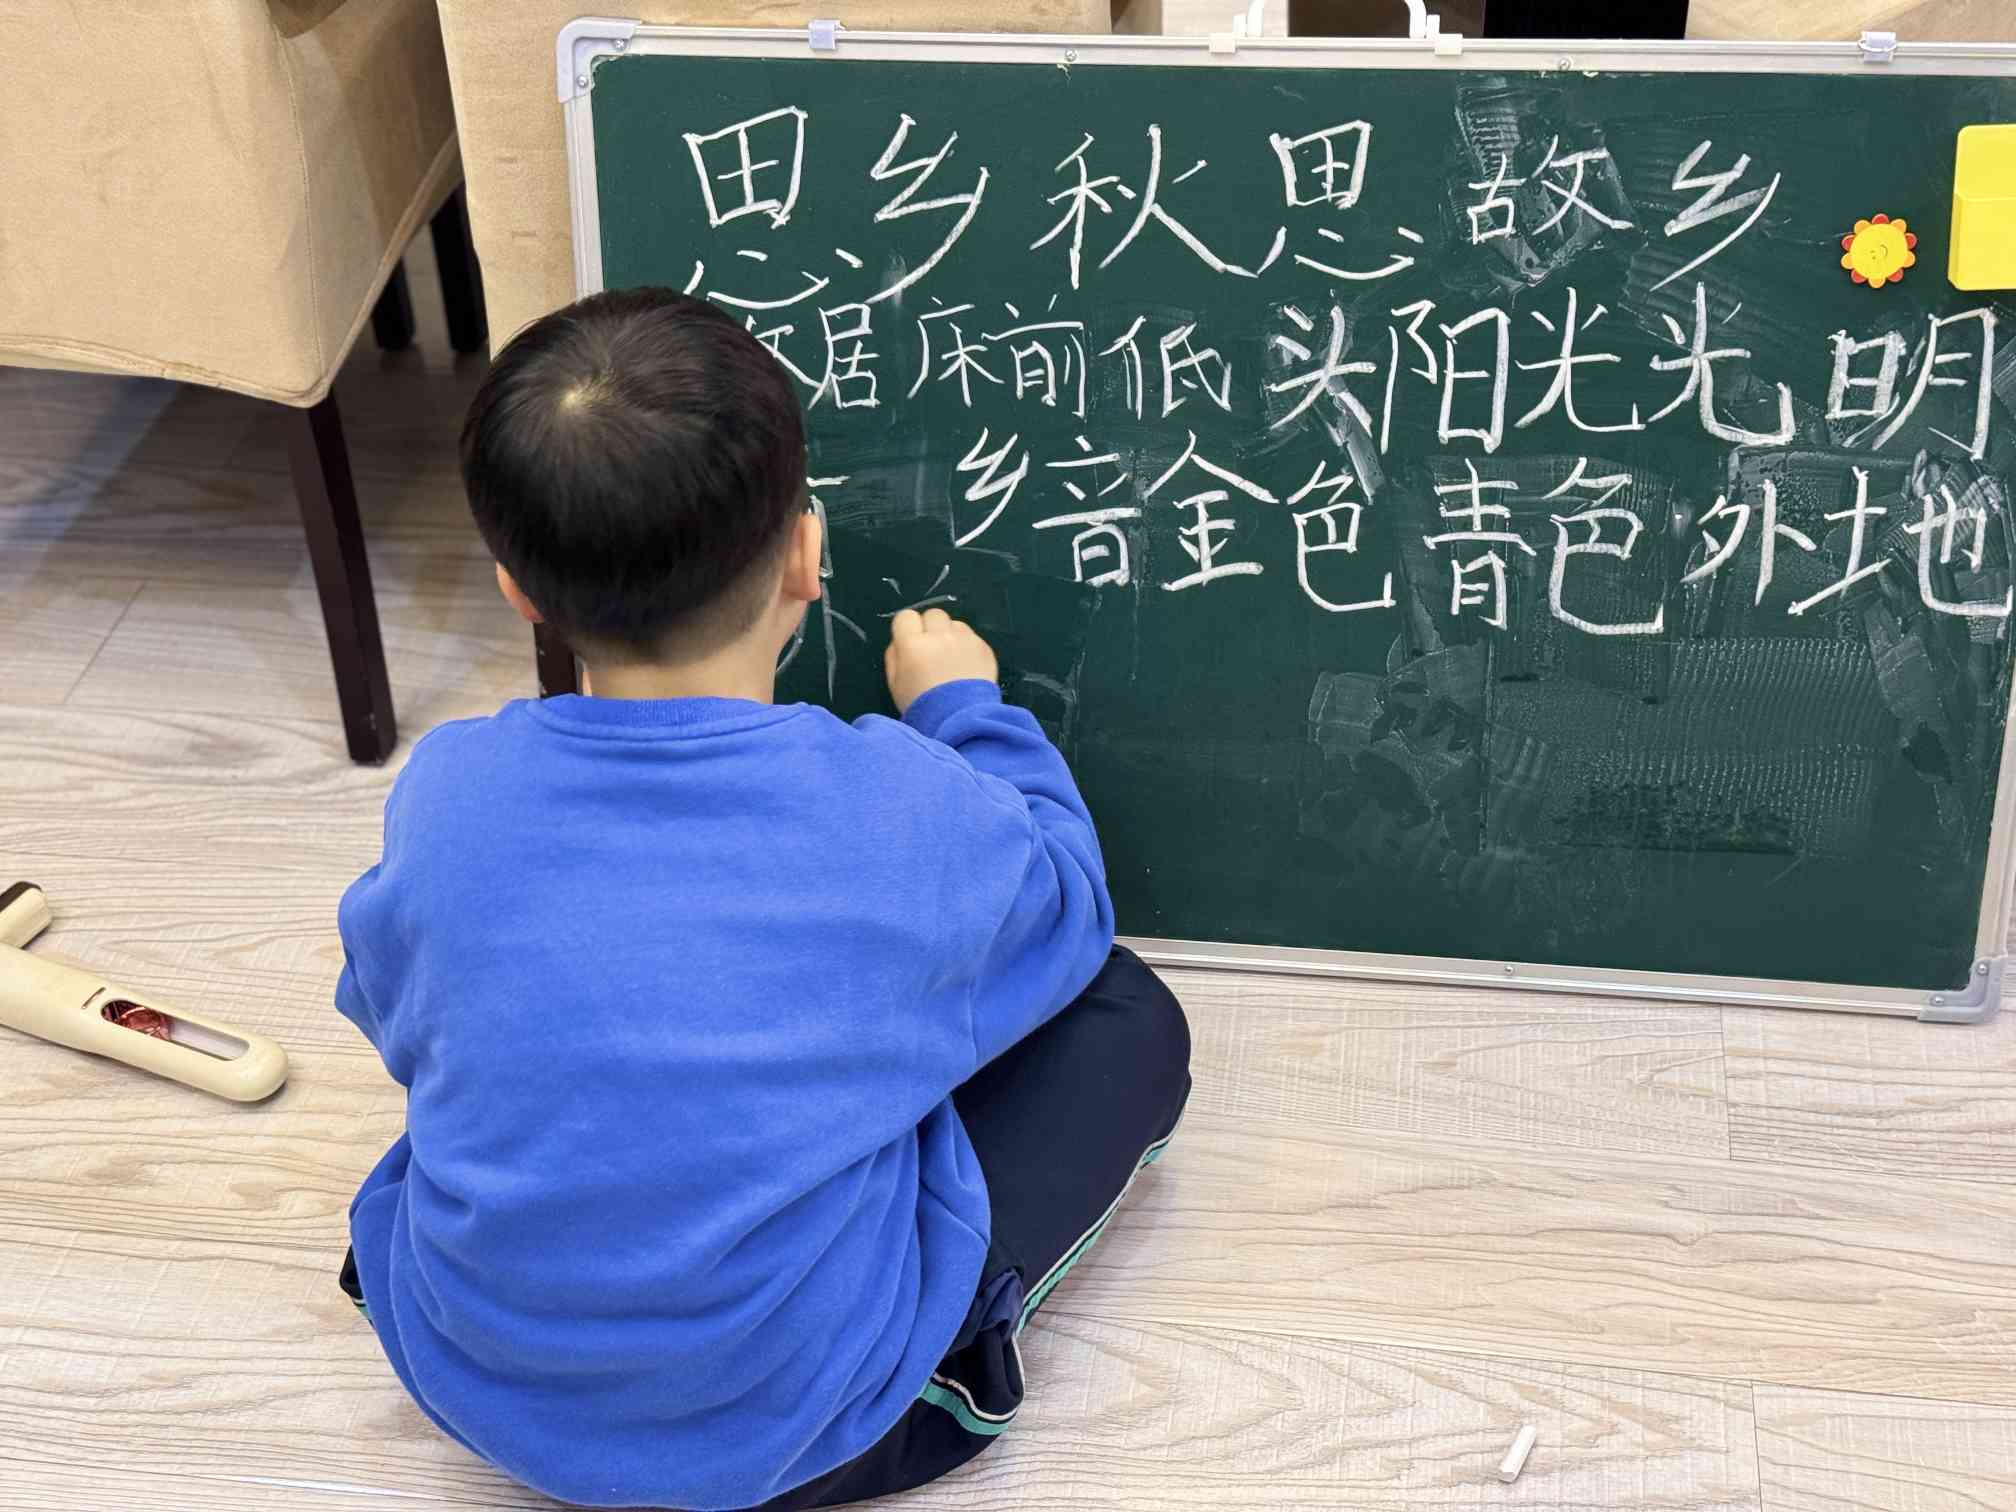 思乡 秋思 故乡
居 床前 低头 阳光 光明
乡音 金色 青色 外地